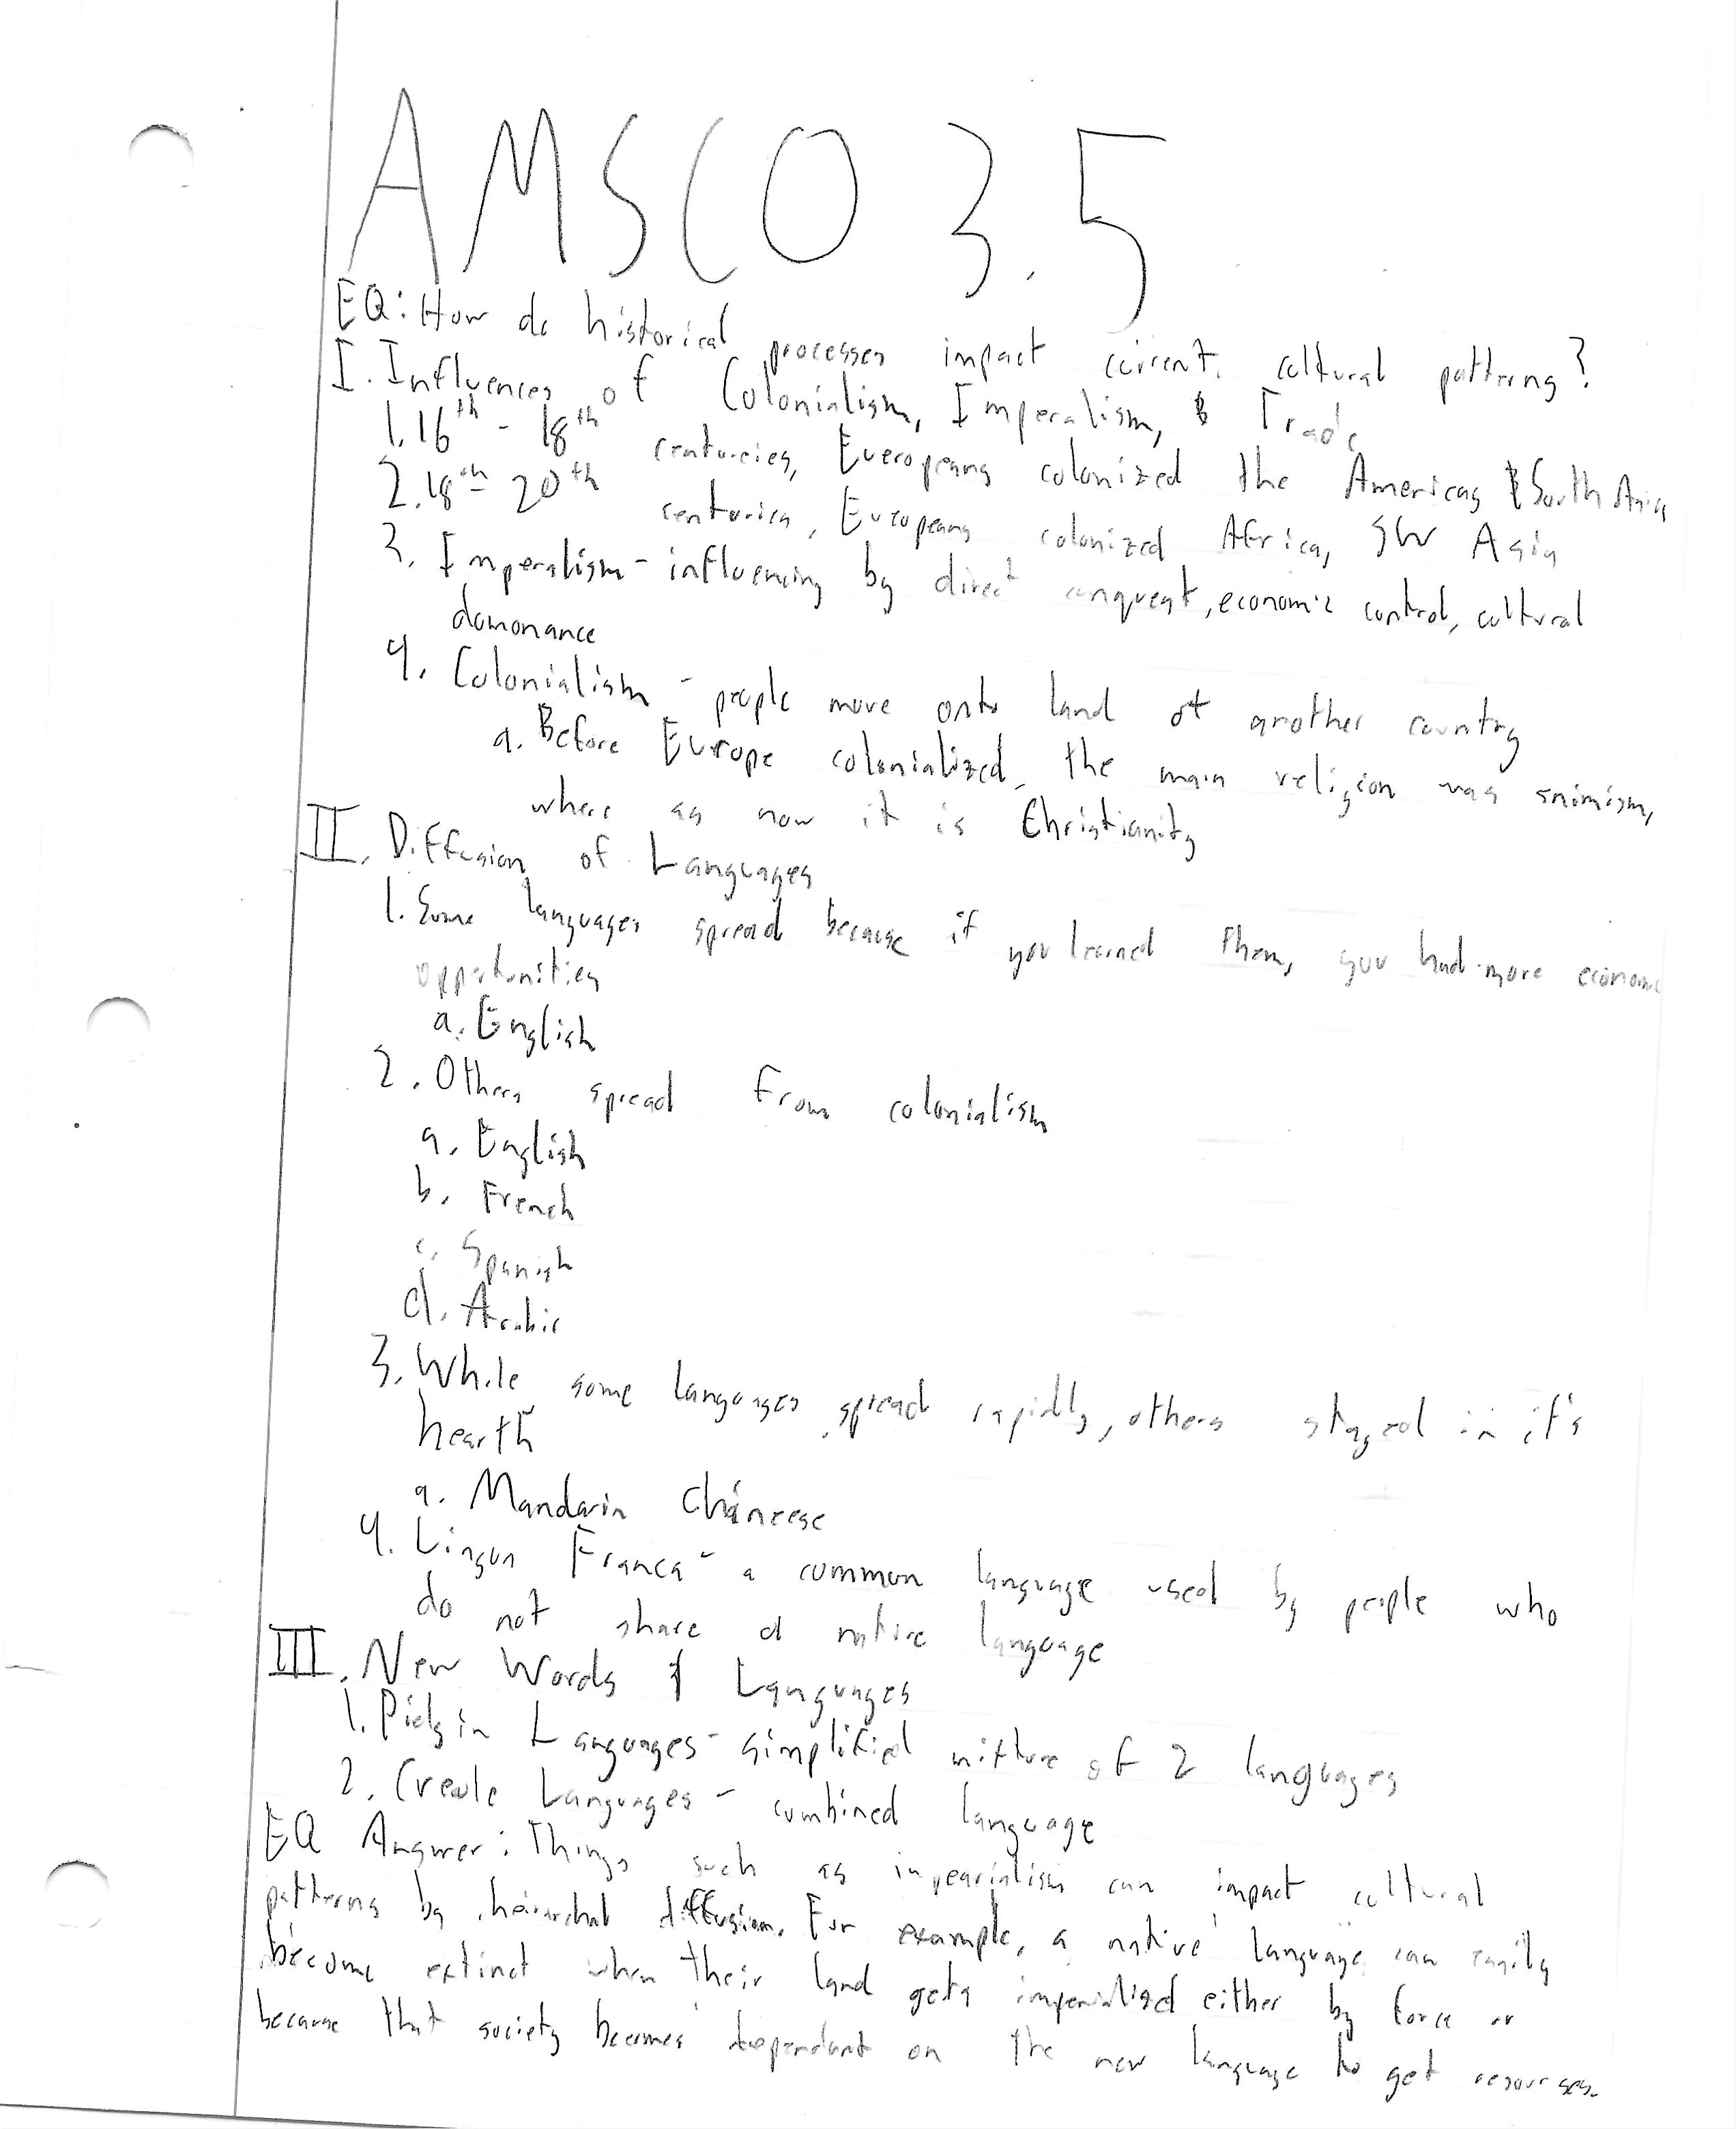 AMSCO 3.5
EQ: How do historical processes impact current cultural patterns?
I. Influences of Colonialism, Imperalism, & Trade
1. 16th - 18th centureies, Eueropeans colonized the Americas & South Asia
2. 18th - 20th centuries, Europeans colonized Africa, SW Asia
3. Imperalism - influencing by direct conquest, economic control, cultural
domonance
4. Colonialism - people move onto land of another country
a. Before Europe colonialized, the main religion was animism,
where as now it is Christianity
II. Diffusion of Languages
1. Some languages spread because if you learned them, you had more economic
opportunities
a. English
2. Others spread from colonialism
a. English
b. French
c. Spanish
d. Arabic
3. While some languages spread rapidly, others stayed in it's
hearth
a. Mandarin Chineese
4. Lingua Franca - a common language used by people who
do not share a native language
III. New Words & Languages
1. Pidgin Languages - simplified mixture of 2 languages
2. Creole Languages - combined language
EQ Answer: Things such as impearialism can impact cultural
patterns by heirarchal diffusion. For example, a native language can easily
become extinct when their land gets imperialized either by force or
because that society becomes dependant on the new language to get resourses.